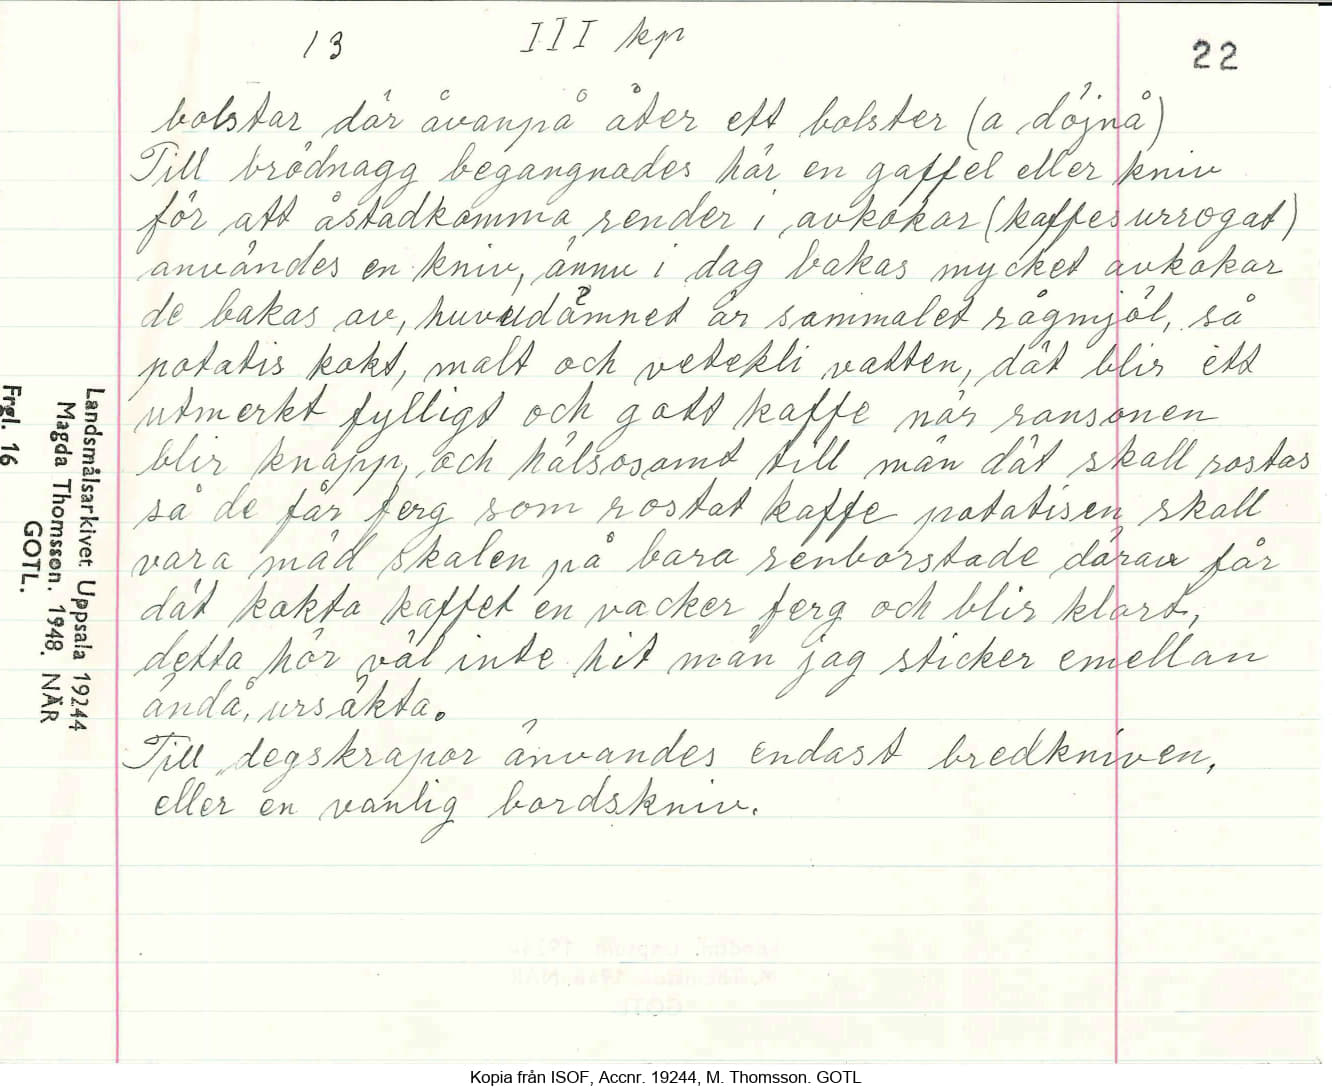 13 III kp 22
bolstar där åvanpå åter ett bolster (a döjnå)
Till brödnagg begangnades här en gaffel eller kniv
för att åstadkomma render i avkokar (kaffesurrogat)
användes en kniv, ännu i dag bakas mycket avkokar
de bakas av, huvudämnet är sammalet rågmjöl, så
potatis kokt, malt och vetekli vatten, dät blir ett
utmerkt fylligt och gott kaffe når ransonen
blir knapp, och hälsosamt till män dät skall rostas
så de får ferg som rostat kaffe potatisen skall
vara mäd skalen på bara renborstade därav får
dät kokta kaffet en vacker ferg och blir klart,
detta hör väl inte hit män jag sticker emellan
ändå, ursäkta.
Till degskrapor användes endast bredkniven,
eller en vanlig bordskniv.
Landsmålsarkivet Uppsala 19244
Magda Thomsson. 1948. NÄR
GOTL.
Frgl. 16
Kopia från ISOF, Accnr. 19244, M. Thomsson. GOTL